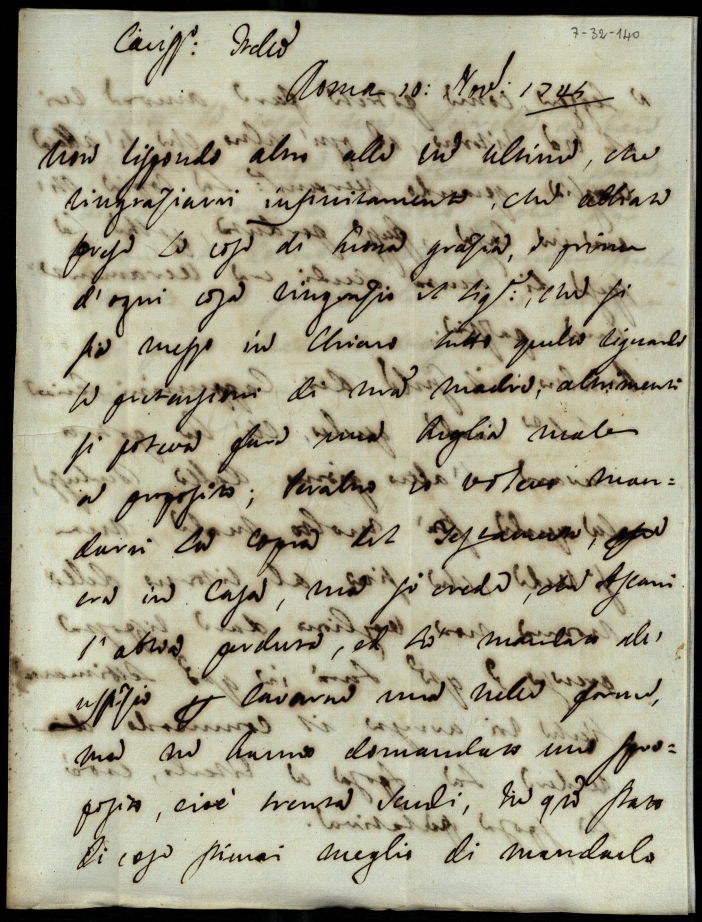 7-32-140
Cariss.º:
Roma 20: Nov.: 1745
Non rispondo altro alla sua ultima, che
ringraziarvi infinitamente, che abbiate
preso le cose di buona grazia, e prima
d'ogni cosa ringrazio il Sig.:, che si
sia messo in chiaro tutto quello riguarda
le pretensioni di mia madre, altrimenti
si poteva fare una briglia male
a proposito; Peraltro io voleva man=
darvi la copia del Testamento,
era in Casa, ma si crede, che Ascani
l'abbia perduta, et ho mandato all'
uffizio p cavarne una nelle forme,
ma ne hanno domandato uno spro=
posito, cioè trenta scudi, in q.to stato
di cose stimai meglio di mandarlo